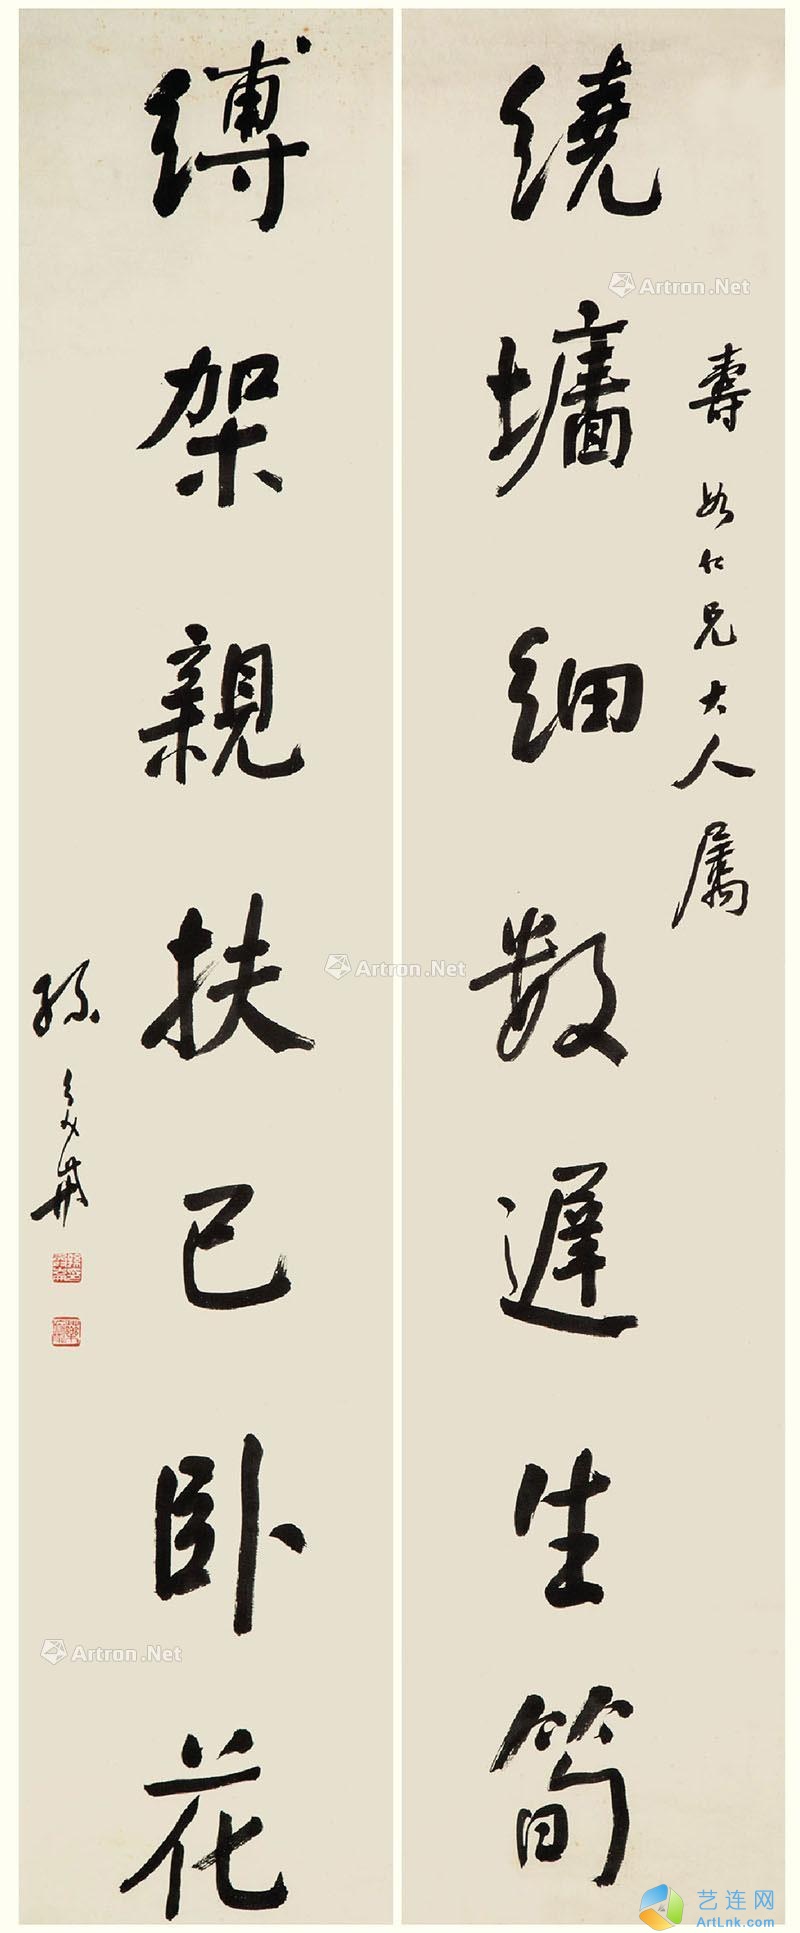 壽如仁兄大人屬
繞墻細數遲生筍
縛架親扶已卧花
孫多
Artron.Net
Artron.Net
Artron.Net
艺连网
ArtLnk.com